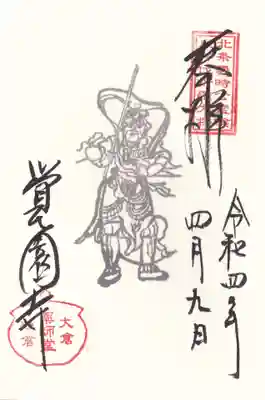 北条義時
奉拝
令和四年
四月九日
覚園寺
大倉
薬師堂